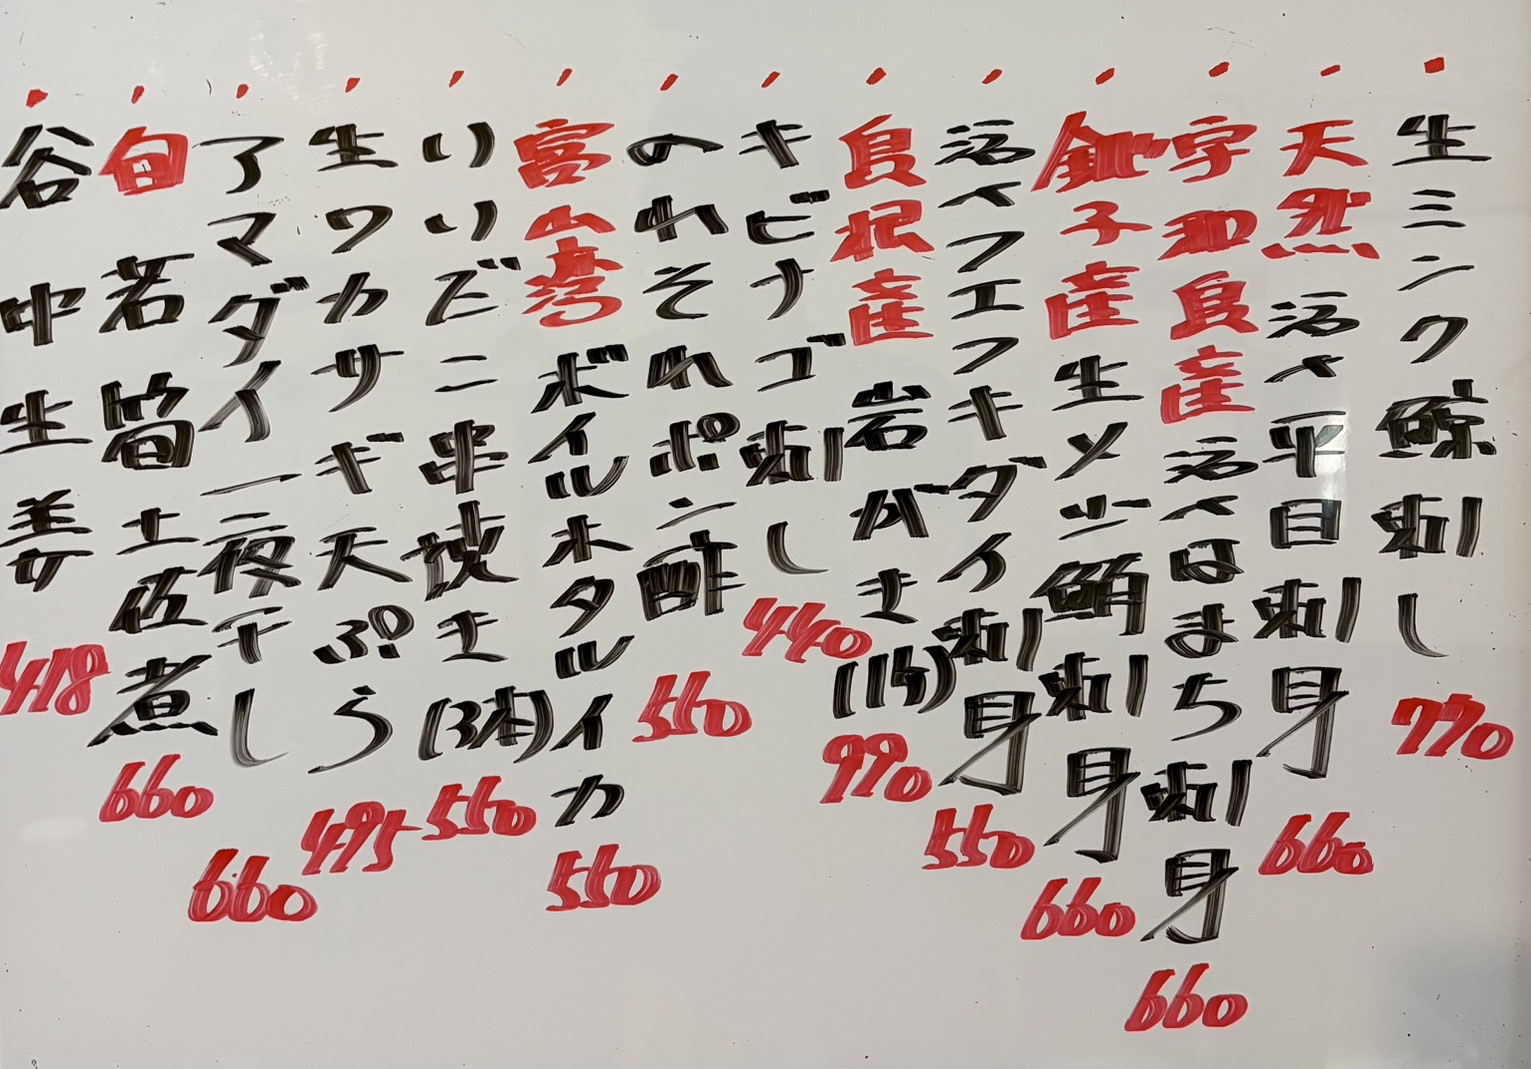 生ミンク鯨刺し 770
天然 活〆平目刺身 660
宇和島産 活〆はまち刺身 660
銚子産 生メジ鮪刺身 660
活〆フエフキダイ刺身 550
島根産 岩がき(1ケ) 990
キビナゴ刺し 440
のれそれポン酢 550
富山湾 ボイルホタルイカ 550
いいだこ串焼き(3本) 550
生ワカサギ天ぷら 495
アマダイ一夜干し 660
旬 若筍土佐煮 660
谷中生姜 418